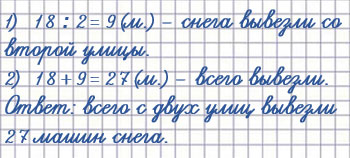 1) 18 : 2 = 9 (м.) – снега вывезли со
второй улицы.
2) 18 + 9 = 27 (м.) – всего вывезли.
Ответ: всего с двух улиц вывезли
27 машин снега.